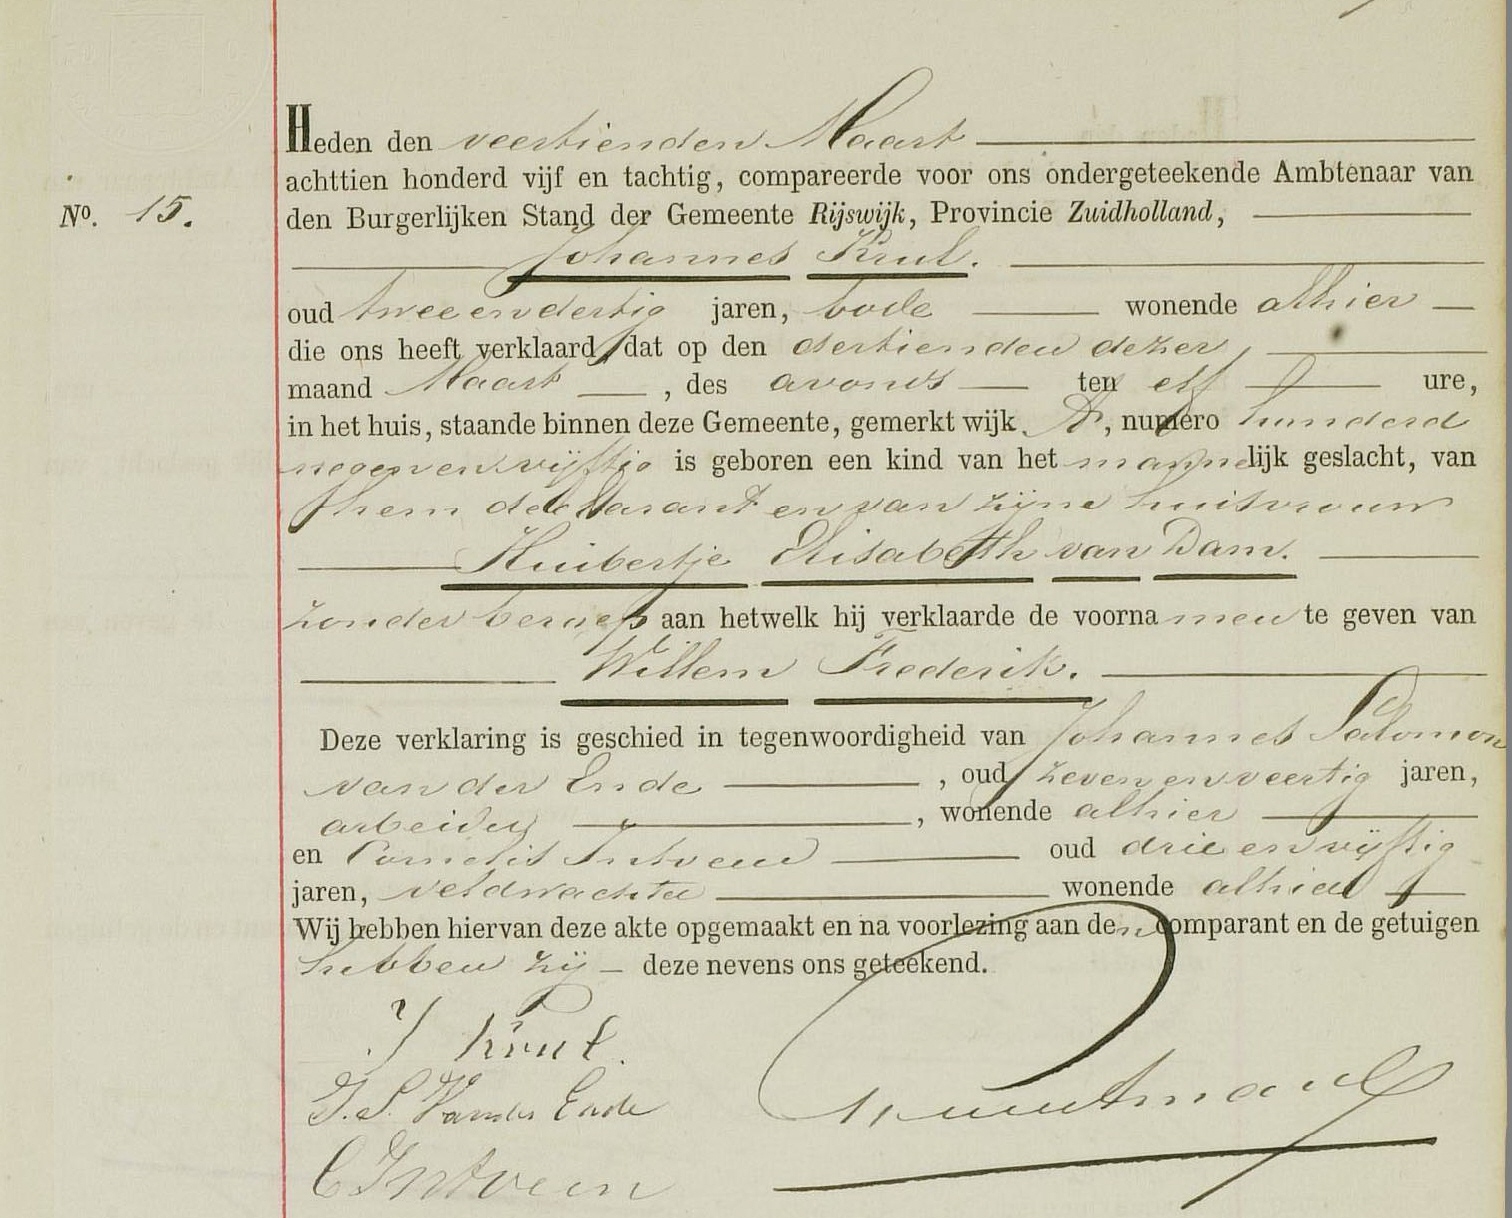 Heden den veertienden Maart
achttien honderd vijf en tachtig, compareerde voor ons ondergeteekende Ambtenaar van
No. 15.
den Burgerlijken Stand der Gemeente Rijswijk, Provincie Zuidholland,
Johannes Krul.
oud tweeendertig jaren, bode wonende alhier
die ons heeft verklaard, dat op den dertienden dezer,
maand Maart, des avonds ten elf ure,
in het huis, staande binnen deze Gemeente, gemerkt wijk A, numero honderd
negenenvijftig is geboren een kind van het mannelijk geslacht, van
hem declarant en van zijne huisvrouw
Huibertje Elisabeth van Dam.
zonder beroep aan hetwelk hij verklaarde de voornamen te geven van
Willem Frederik.
Deze verklaring is geschied in tegenwoordigheid van Johannes Salomon
van der Ende, oud zevenenveertig jaren,
arbeider, wonende alhier
en Cornelis Intveen oud drieenvijftig
jaren, veldwachter wonende alhier
Wij hebben hiervan deze akte opgemaakt en na voorlezing aan den comparant en de getuigen
hebben zij deze nevens ons geteekend.
J Krul.
J. S. Van der Ende
C Intveen